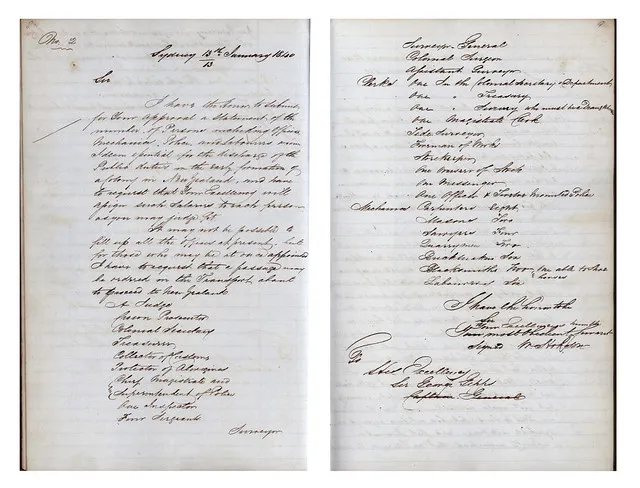 No. 2
Sydney 13th January 1840
13
Sir
I have the honor to submit
for Your approval a Statement of the
number of Persons including Officers
Mechanics, Police and labourers whom
I deem essential for the discharge of the
Public duties on the early formation of
a Colony in New Zealand, and have
to request that Your Excellency will
assign such Salaries to each person
as you may judge fit
It may not be possible to
fill up all the offices at present, but
for those who may be at once appointed
I have to request that a passage may
be ordered on the Transport about
to proceed to New Zealand
A Judge
Crown Prosecutor
Colonial Secretary
Treasurer
Collector of Customs
Protector of Aborigines
Chief Magistrate and
Superintendent of Police
One Inspector
Four Sergeants
Surveyor
Surveyor General
Colonial Surgeon
Assistant Surveyor
Clerks One in the Colonial Secretary's Department
One " Treasury
One " Survey who must be a Draughtsman
One Magistrates Clerk
Tide Surveyor
Foreman of Works
Storekeeper
One of Stock
One Messenger
One Officer & Mounted Police
Mechanics Carpenters Eight
Masons Two
Sawyers Four
Quarrymen Two
Bricklayers
Blacksmiths Two One able to Shoe
horses
Labourers
I have the honor to be
Sir
Your Excellency's humble
Your most obedient Servant
Signed W Hobson
To
His Excellency
Sir George Gipps
Captain General